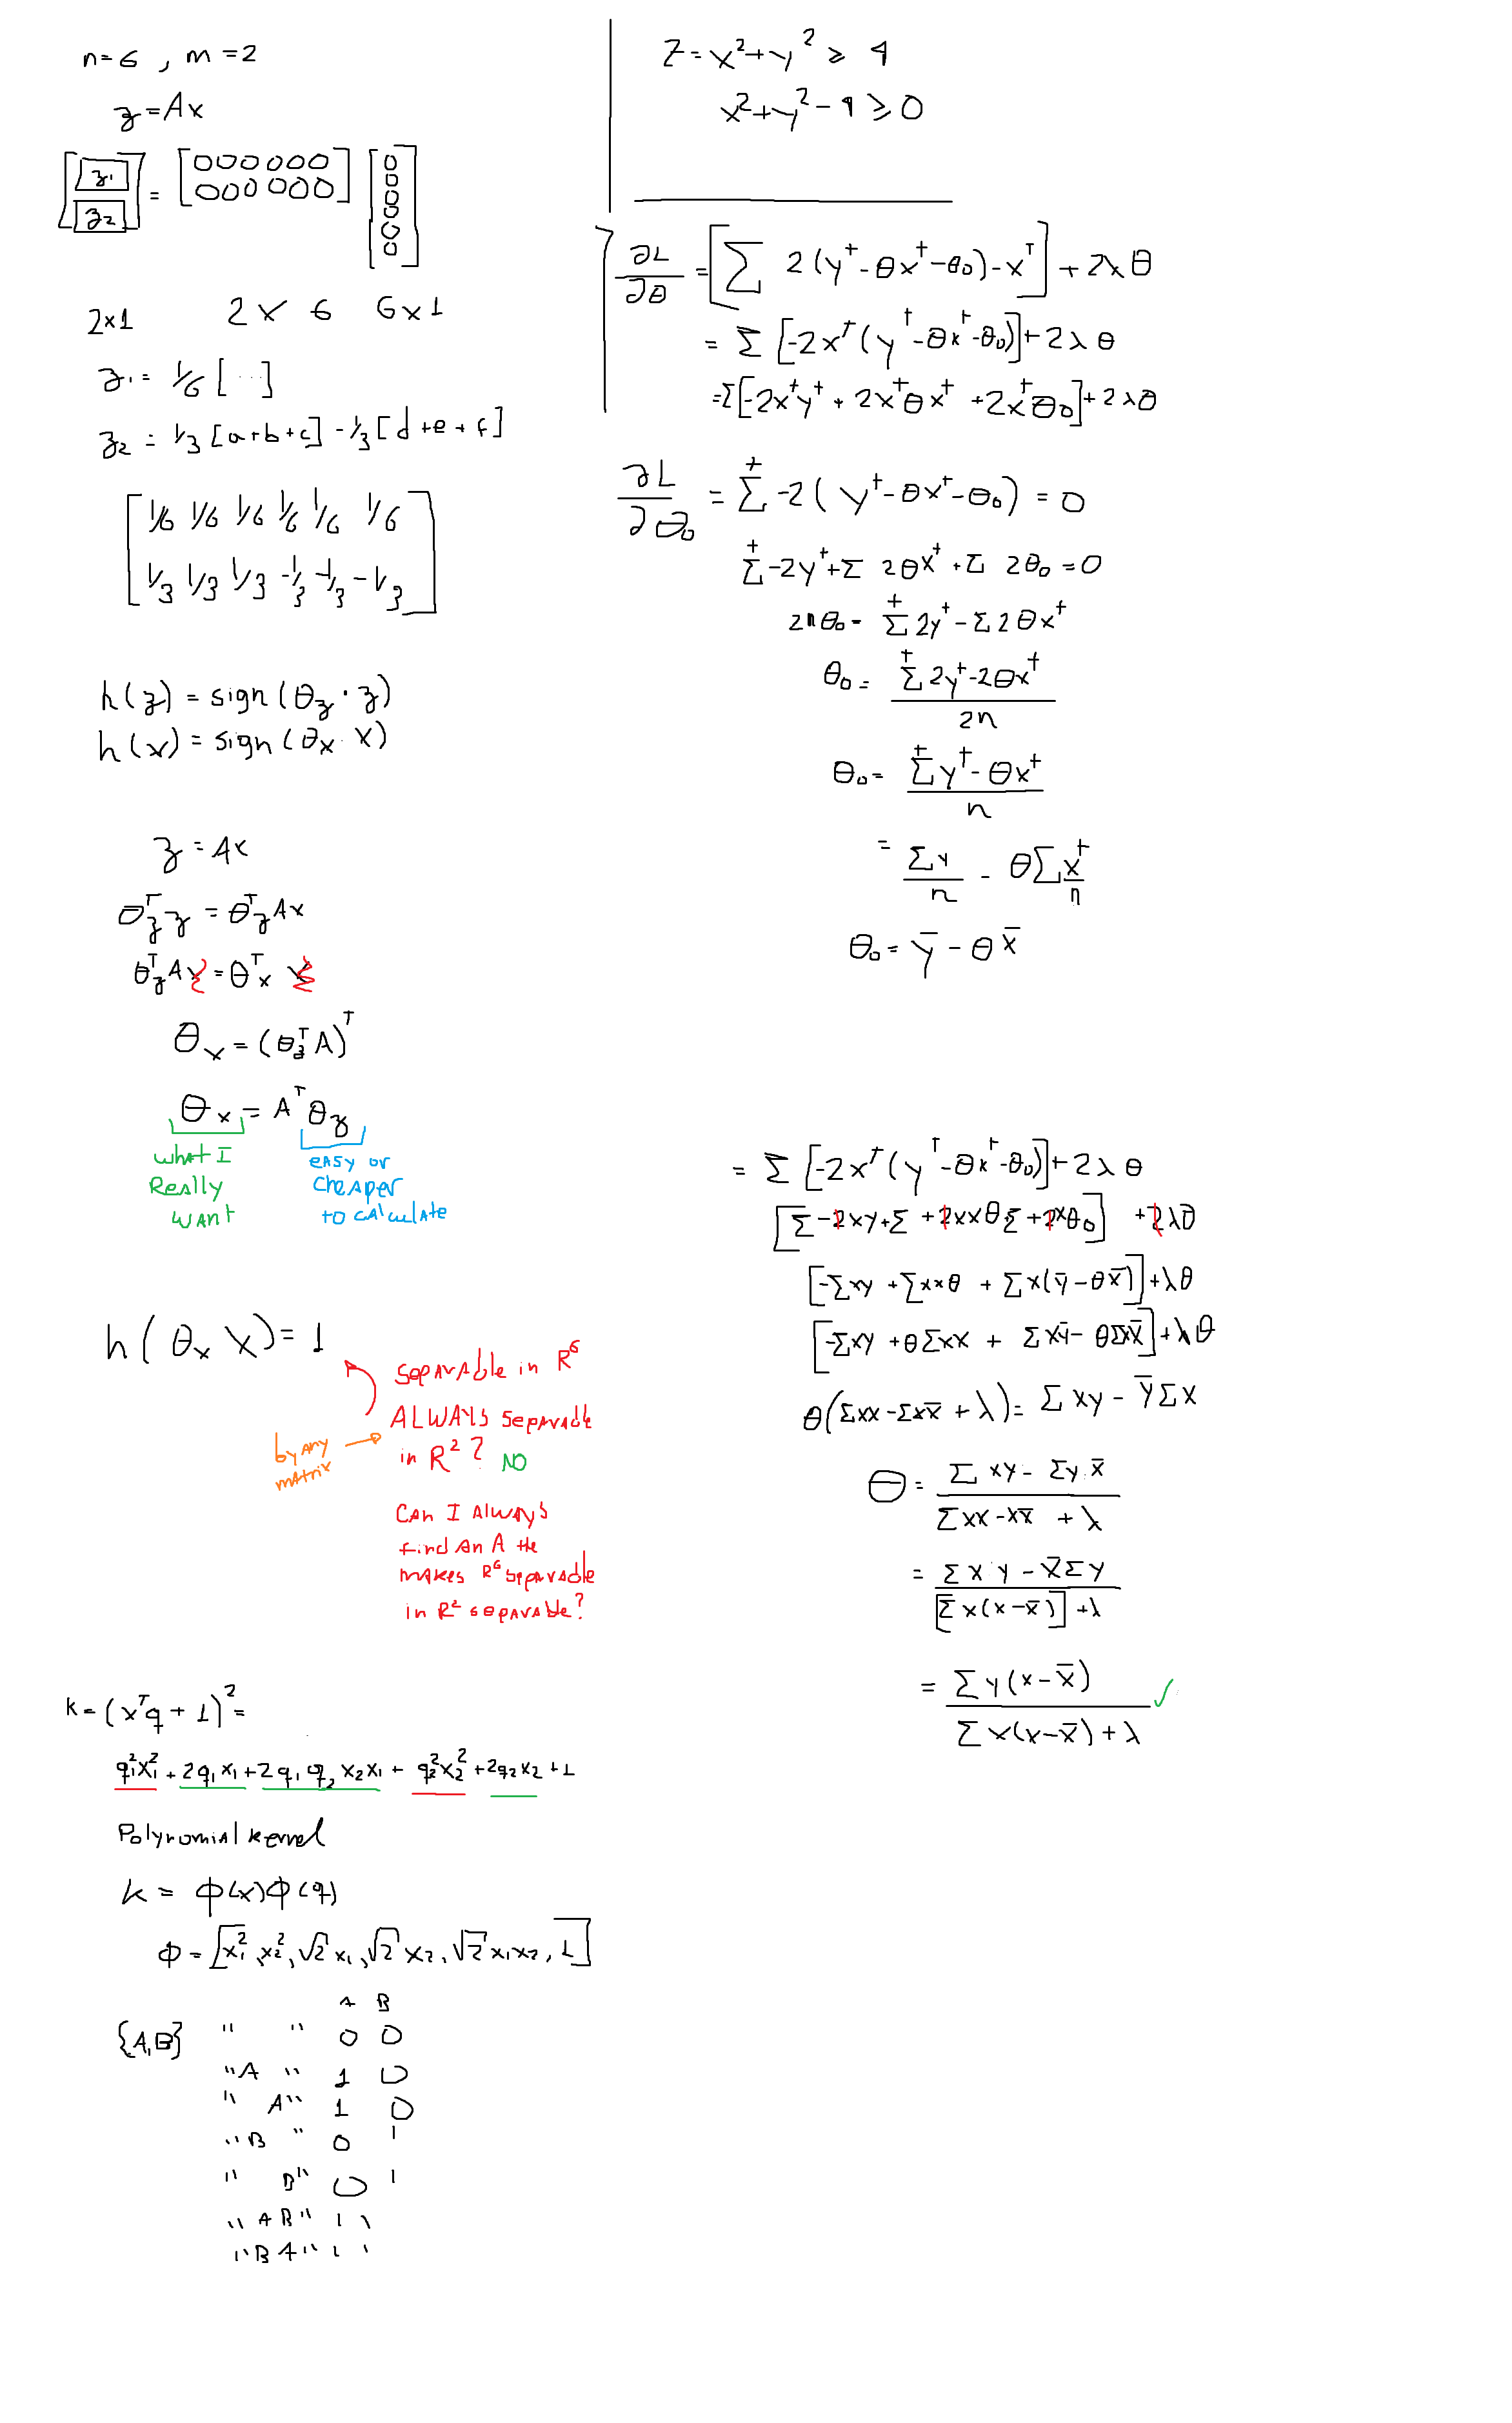 n=6 , m=2
z=Ax
[z1 z2] = [000000 000000] [000000]
2×1 2×6 6×1
z1= 1/6 [...]
z2 = 1/3 [a+b+c] -1/3 [d+e+f]
[1/6 1/6 1/6 1/6 1/6 1/6
1/3 1/3 1/3 -1/3 -1/3 -1/3]
h(z) = sign(θz · z)
h(x) = sign(θx · x)
z = Ax
θzᵀ z = θzᵀ Ax
θzᵀ Ax = θxᵀ x
θx = (θzᵀ A)ᵀ
θx = Aᵀ θz
what I
Really
want
easy or
cheaper
to calculate
h(θx X) = 1
separable in R⁶
ALWAYS separable
in R² ? NO
by any
matrix
Can I always
find an A the
makes R⁶ separable
in R² separable?
k = (xᵀq + 1)² =
q1²x1² + 2q1x1 + 2q1q2x2x1 + q2²x2² + 2q2x2 + 1
Polynomial kernel
k = ϕ(x)ϕ(q)
ϕ = [x1², x2², √2 x1, √2 x2, √2 x1x2, 1]
A B
{A,B} " " 0 0
"A " 1 0
" A" 1 0
"B " 0 1
" B" 0 1
"AB" 1 1
"BA" 1 1
Z = x²+y² ≥ 9
x²+y²-9 ≥ 0
∂L/∂θ = [Σ 2(yᵗ-θxᵗ-θ0)-xᵗ] + 2λθ
= Σ [-2xᵗ(yᵗ-θxᵗ-θ0)] + 2λθ
=Σ[-2xᵗyᵗ + 2xᵗθxᵗ + 2xᵗθ0] + 2λθ
∂L/∂θ0 = Σᵗ -2(yᵗ-θxᵗ-θ0) = 0
Σᵗ -2yᵗ + Σ 2θxᵗ + Σ 2θ0 = 0
2nθ0 = Σᵗ 2yᵗ - Σ 2θxᵗ
θ0 = Σᵗ 2yᵗ-2θxᵗ / 2n
θ0 = Σᵗ yᵗ-θxᵗ / n
= Σy/n - θΣxᵗ/n
θ0 = ȳ - θx̄
= Σ [-2xᵗ(yᵗ-θxᵗ-θ0)] + 2λθ
[Σ -2xy + Σ +2xxθ Σ +2xθ0] +2λθ
[-Σxy + Σxxθ + Σx(ȳ-θx̄)] + λθ
[-Σxy + θΣxx + Σxȳ - θΣxx̄] + λθ
θ(Σxx-Σxx̄ + λ) = Σxy - ȳΣx
θ = Σxy - Σy x̄ / Σxx-xx̄ + λ
= Σxy - x̄Σy / [Σx(x-x̄)] + λ
= Σy(x-x̄) / Σx(x-x̄) + λ ✓